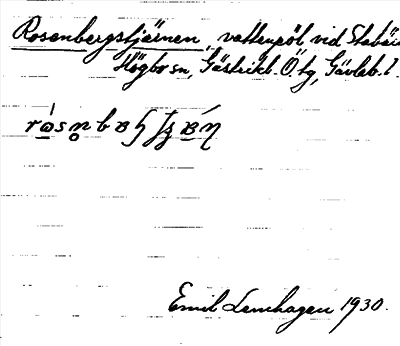 Rosenbergstjärnen, vattenpöl vid
Högbo sn, Gästrikl. Ö. tg, Gävleb. l.
Emil Lenhagen 1930.